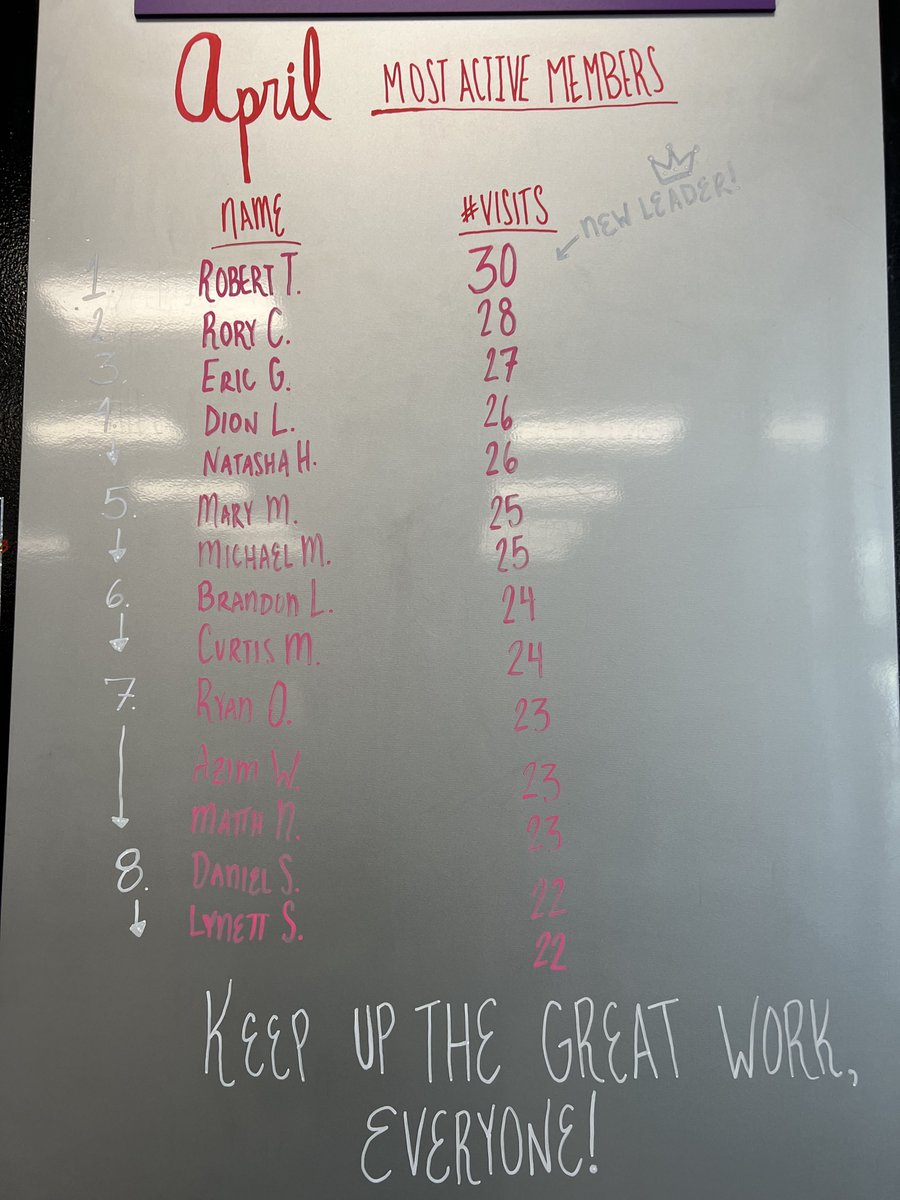 April MOST ACTIVE MEMBERS
NEW LEADER!
NAME #VISITS
1. ROBERT T. 30
2. RORY C. 28
3. ERIC G. 27
4. DION L. 26
NATASHA H. 26
5. MARY M. 25
MICHAEL M. 25
6. BRANDON L. 24
CURTIS M. 24
7. RYAN O. 23
AZIM W. 23
MATTH N. 23
8. DANIEL S. 22
LYNETT S. 22
KEEP UP THE GREAT WORK,
EVERYONE!